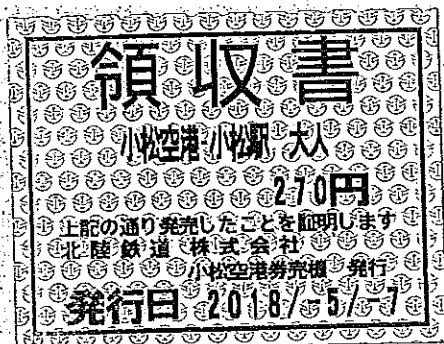 領収書
小松空港-小松駅 大人
270円
上記の通り発売したことを証明します
北陸鉄道株式会社
小松空港券売機 発行
発行日 2018/-5/-7